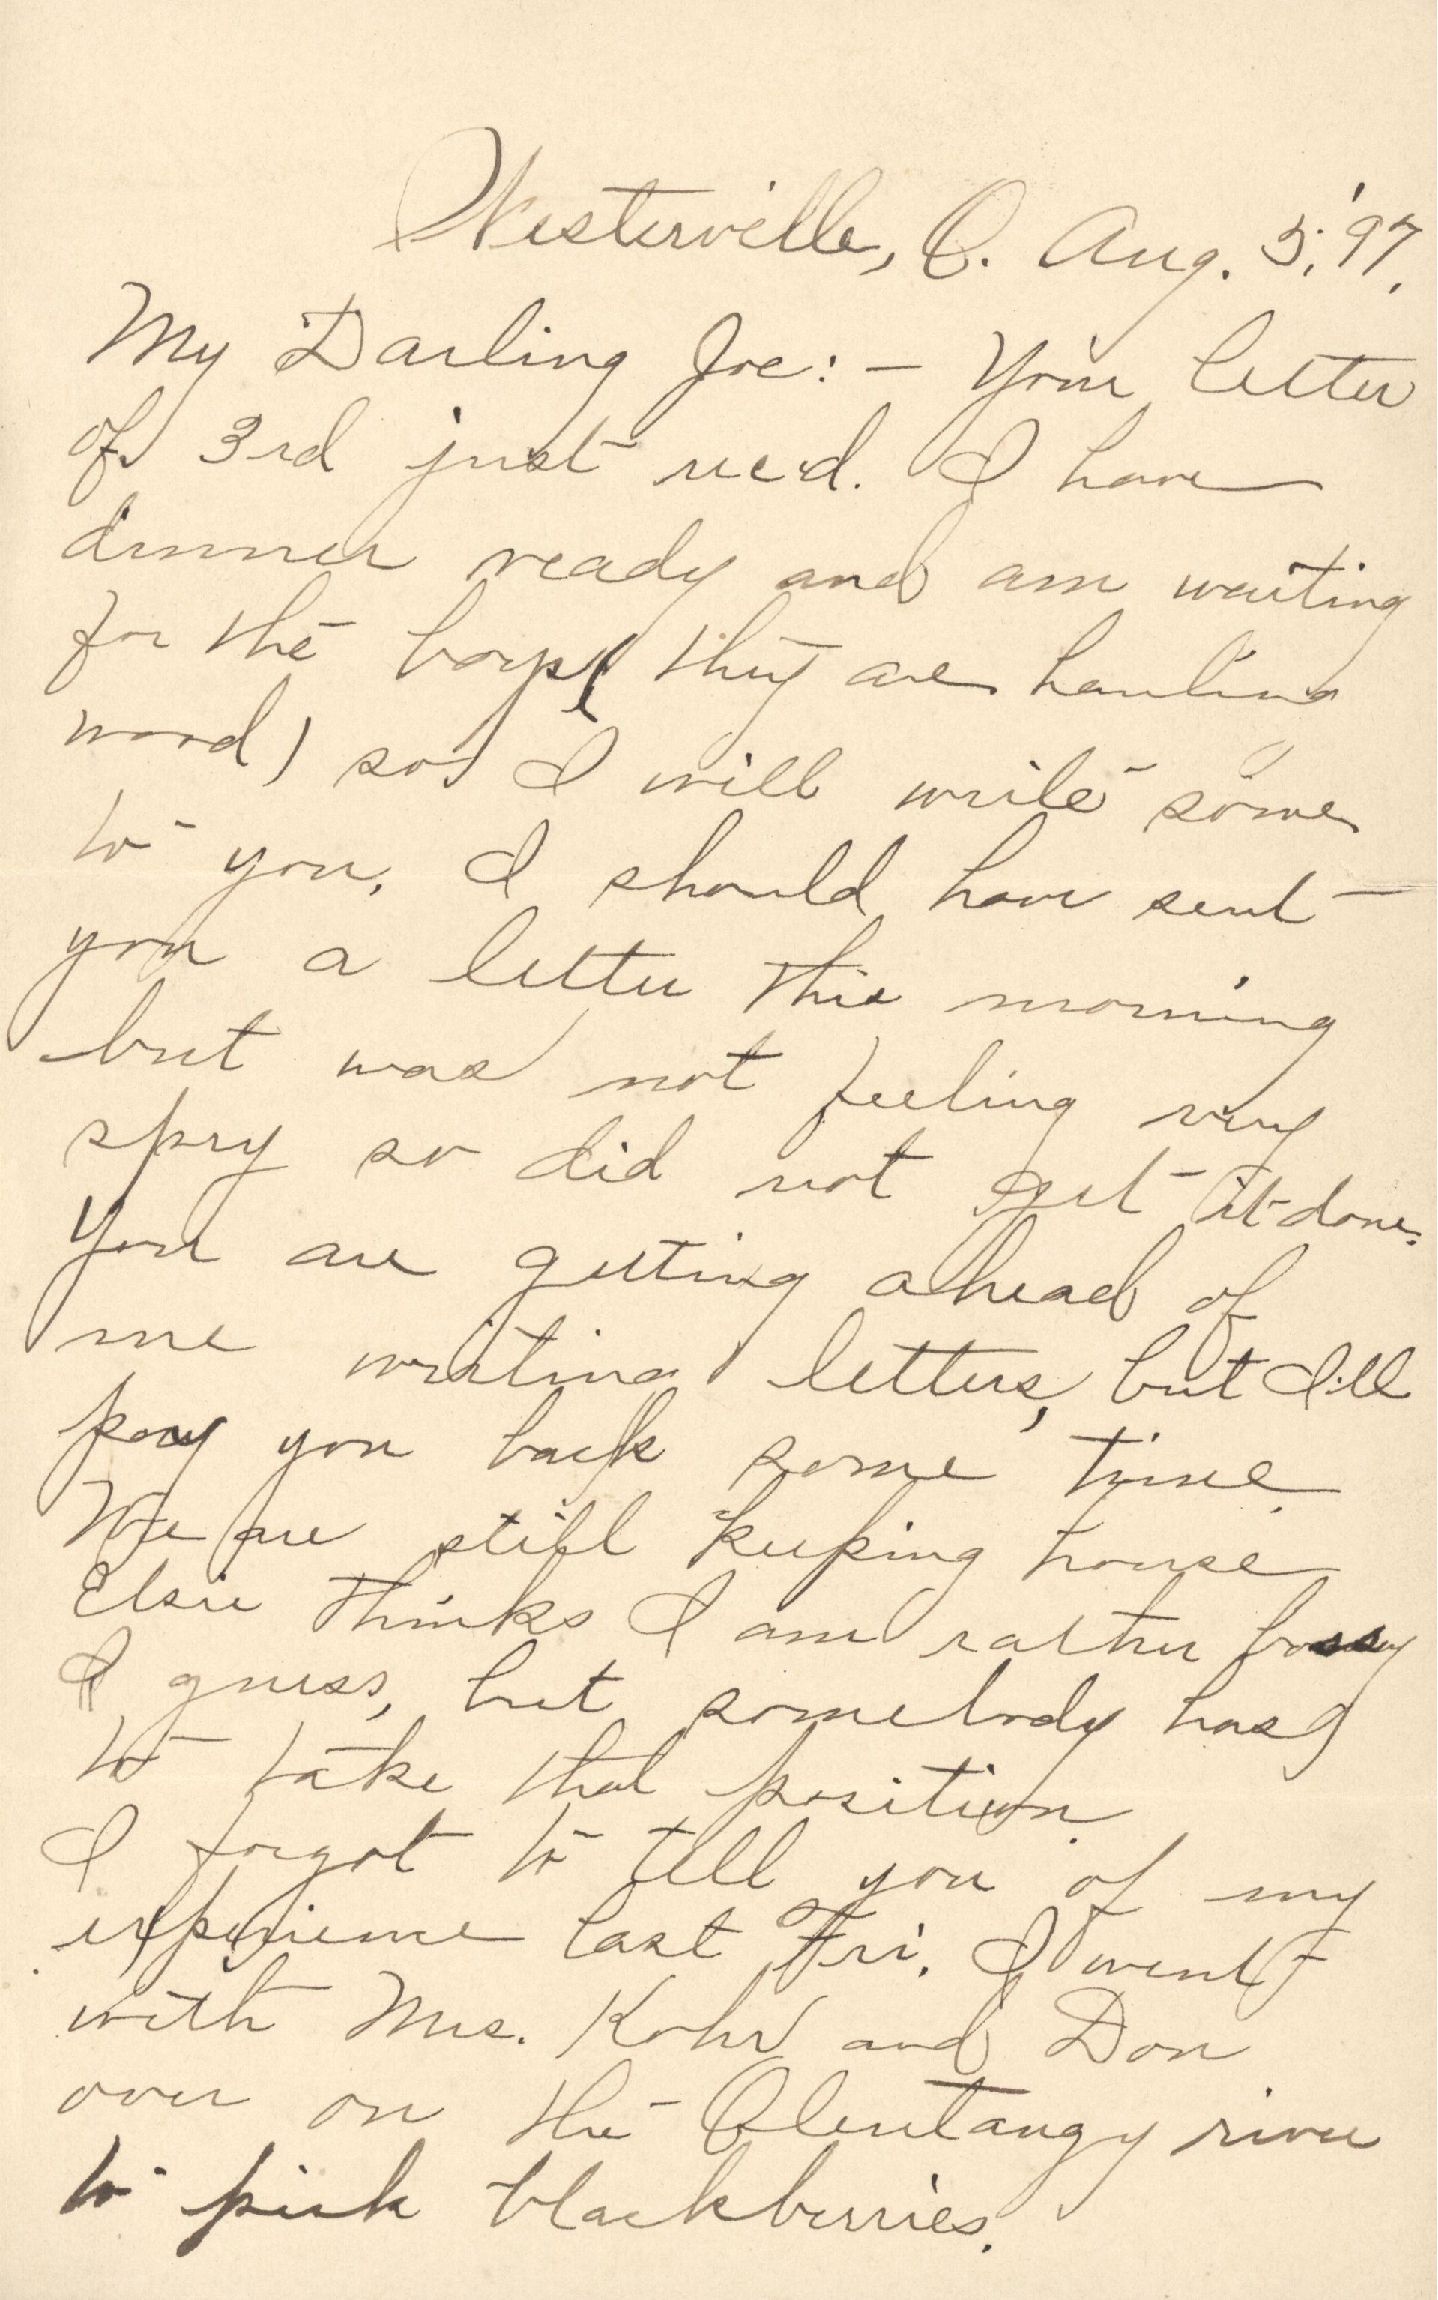 Westerville, O. Aug. 5, '97.
My Darling Joe: — Your letter
of 3rd just rec'd. I have
dinner ready and am waiting
for the boys (they are hauling
wood) so I will write some
to you. I should have sent
you a letter this morning
but was not feeling very
spry so did not get it done.
You are getting ahead of
me writing letters, but I'll
pay you back some time.
We are still keeping house
Elsie thinks I am rather bossy
I guess, but somebody has
to take that position.
I forgot to tell you of my
experience last Fri. I went
with Mrs. Kohr and Don
over on the Olentangy river
to pick blackberries.